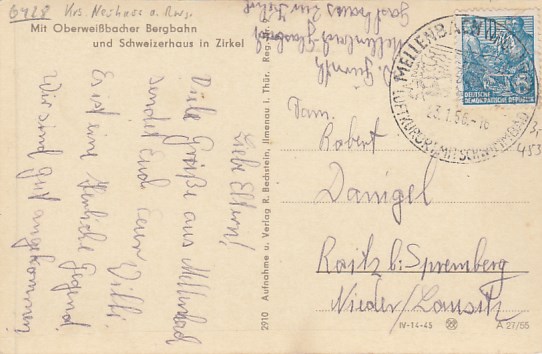 6428 Krs. Neuhaus a. Rwg.
Mit Oberweißbacher Bergbahn
und Schweizerhaus in Zirkel
Liebe Eltern!
Viele Grüße aus Mellenbad
sendet Euch Euer Willi
Es ist eine herrliche Gegend
Wir sind gut angekommen
Mellenbach Glasbach
Gasthaus zur
2910 Aufnahme u. Verlag R. Bechstein, Ilmenau i. Thür. Reg.
MELLENBACH
LUFTKURORT MIT SCHWIMMBAD
23.7.56.-16
10
DEUTSCHE
DEMOKRATISCHE REPUBLIK
Fam.
Robert
Danigel
Raitz b: Spremberg
Nieder/Lausitz
IV-14-45
A 27/55